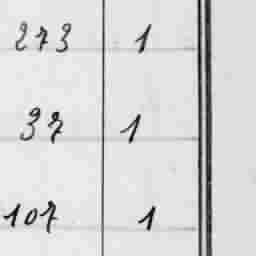 273 1
37 1
107 1